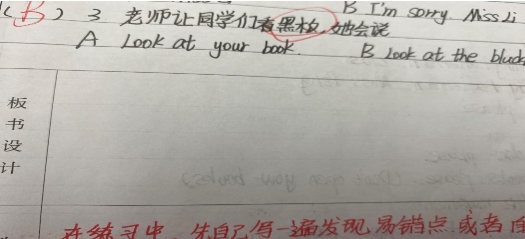 B I'm sorry. Miss Li
(B) 3 老师让同学们看黑板,她会说
A Look at your book. B Look at the black
板书设计
在练习中,先自己写一遍发现易错点,或者